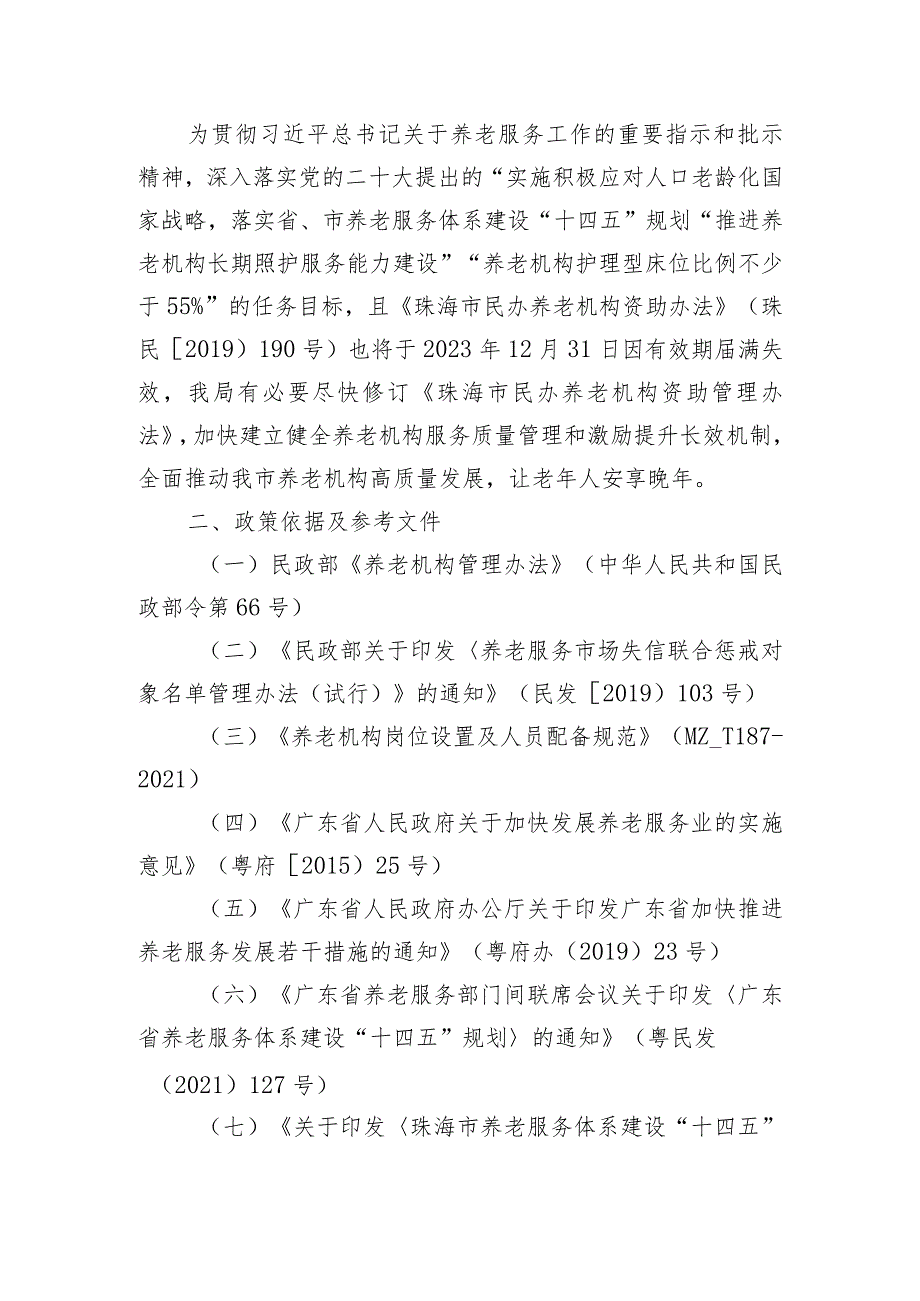 为贯彻习近平总书记关于养老服务工作的重要指示和批示
精神，深入落实党的二十大提出的“实施积极应对人口老龄化国
家战略，落实省、市养老服务体系建设“十四五”规划“推进养
老机构长期照护服务能力建设”“养老机构护理型床位比例不少
于 55%”的任务目标，且《珠海市民办养老机构资助办法》（珠
民［2019）190 号）也将于 2023 年 12 月 31 日因有效期届满失
效，我局有必要尽快修订《珠海市民办养老机构资助管理办
法》,加快建立健全养老机构服务质量管理和激励提升长效机制，
全面推动我市养老机构高质量发展，让老年人安享晚年。
二、政策依据及参考文件
（一）民政部《养老机构管理办法》（中华人民共和国民
政部令第 66 号）
（二）《民政部关于印发〈养老服务市场失信联合惩戒对
象名单管理办法（试行）》的通知》（民发［2019）103 号）
（三）《养老机构岗位设置及人员配备规范》（MZ_T187-
2021）
（四）《广东省人民政府关于加快发展养老服务业的实施
意见》（粤府［2015）25 号）
（五）《广东省人民政府办公厅关于印发广东省加快推进
养老服务发展若干措施的通知》（粤府办（2019）23 号）
（六）《广东省养老服务部门间联席会议关于印发〈广东
省养老服务体系建设“十四五”规划〉的通知》（粤民发
（2021）127 号）
（七）《关于印发〈珠海市养老服务体系建设“十四五”